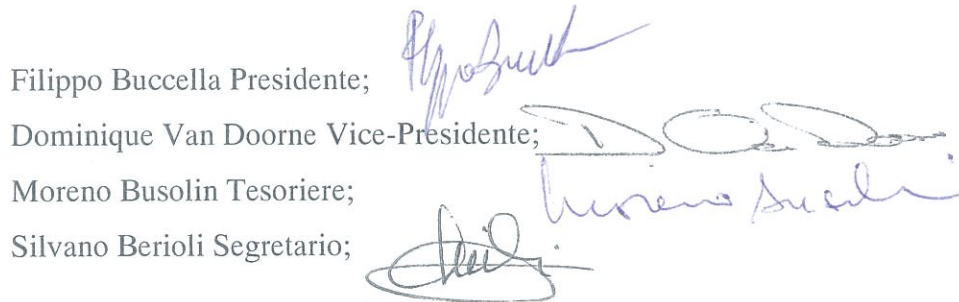 Filippo Buccella Presidente;
Dominique Van Doorne Vice-Presidente;
Moreno Busolin Tesoriere;
Silvano Berioli Segretario;